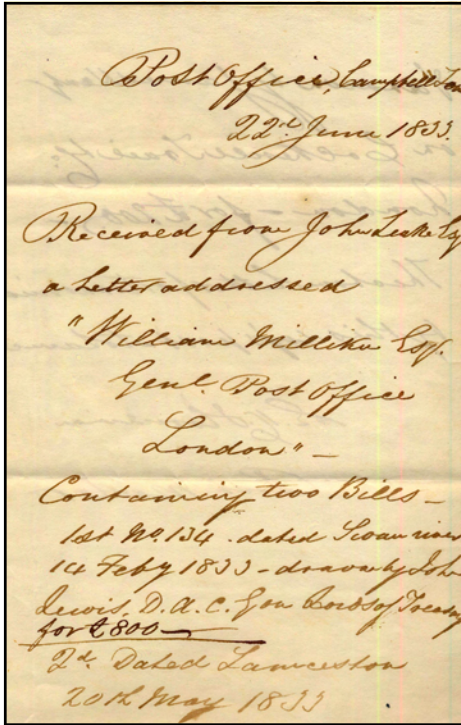 Post Office, Campbell Town
22d. June 1833.
Received from John Leake Esq
a Letter addressed
"William Milliken Esqr.
Genl. Post Office
London" —
Containing two Bills —
1st No. 134. dated Swan river
14 Feby 1833 - drawn by John
Lewis, D. A. C. Gen Lords of Treasury
for £800 —
2d. Dated Launceston
20th May 1833